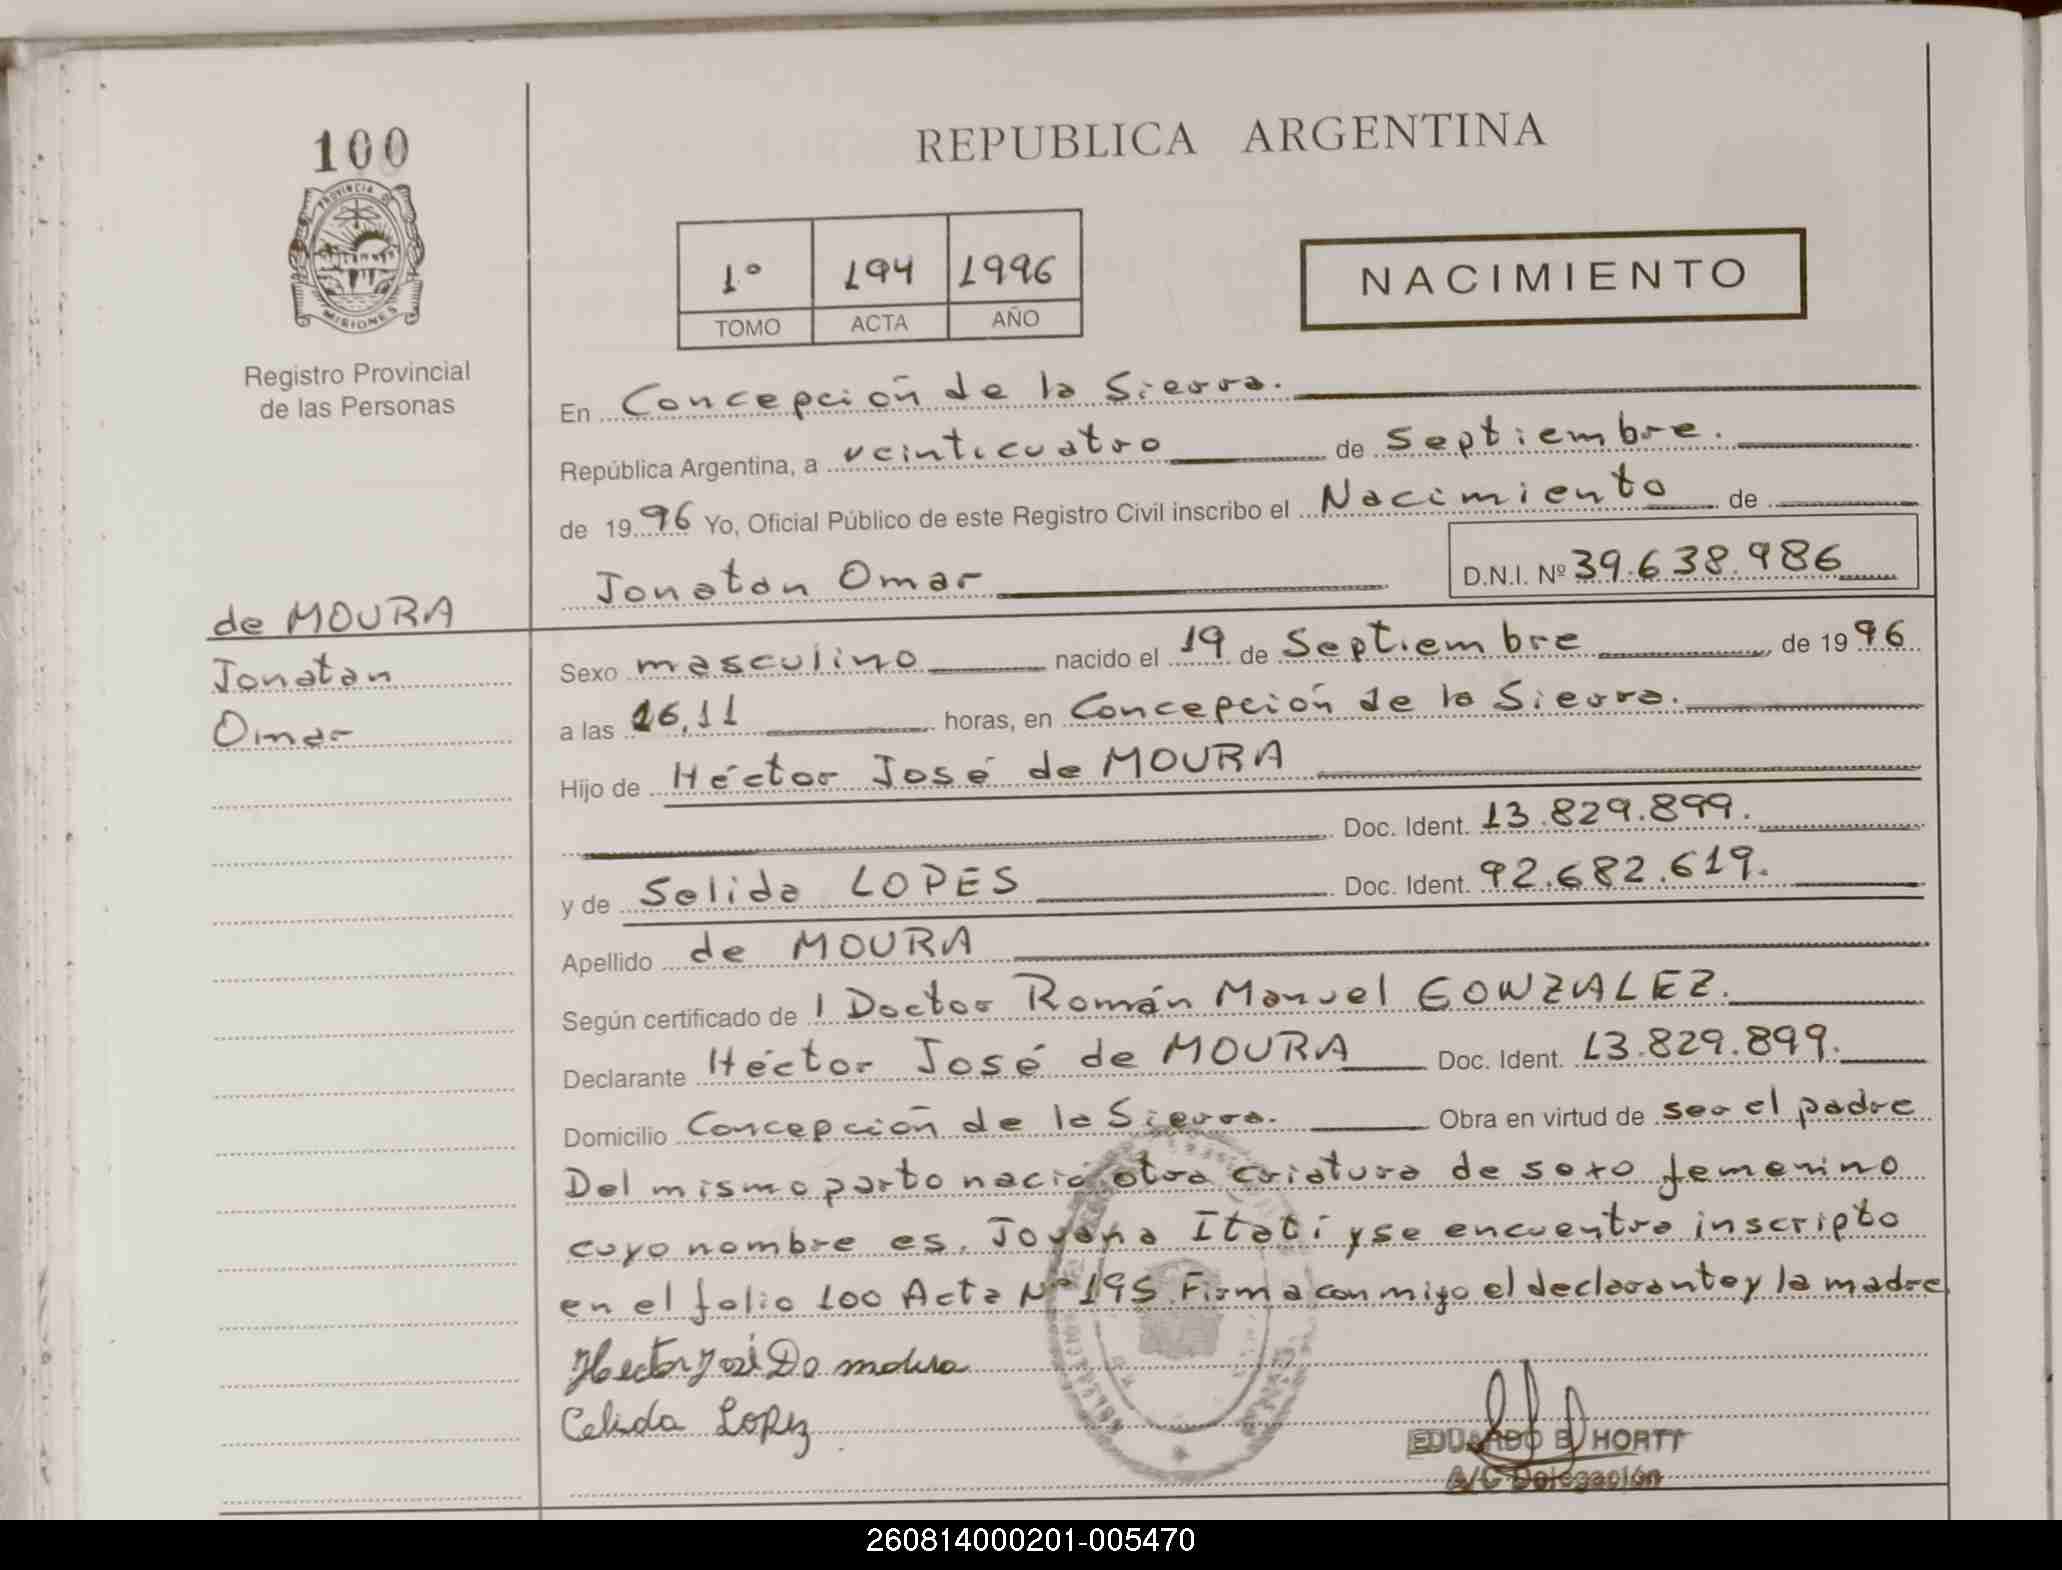 100
PROVINCIA DE
MISIONES
Registro Provincial
de las Personas
de MOURA
Jonatan
Omar
REPUBLICA ARGENTINA
1º 194 1996
TOMO ACTA AÑO
NACIMIENTO
En Concepción de la Sierra.
República Argentina, a veinticuatro de Septiembre.
de 1996 Yo, Oficial Público de este Registro Civil inscribo el Nacimiento de
Jonatan Omar D.N.I. Nº 39.638.986
Sexo masculino nacido el 19 de Septiembre de 1996
a las 16,11 horas, en Concepción de la Sierra.
Hijo de Héctor José de MOURA
Doc. Ident. 13.829.899.
y de Selida LOPES Doc. Ident. 92.682.619.
Apellido de MOURA
Según certificado de l Doctor Román Manuel GONZALEZ.
Declarante Héctor José de MOURA Doc. Ident. 13.829.899.
Domicilio Concepción de la Sierra. Obra en virtud de ser el padre
Del mismo parto nació otra criatura de sexo femenino
cuyo nombre es, Jovana Itatí y se encuentra inscripto
en el folio 100 Acta Nº 195. Firma conmigo el declarante y la madre
Hector José De moura
Celida Lopez
EDUARDO E. HORTT
A/C Delegación
260814000201-005470